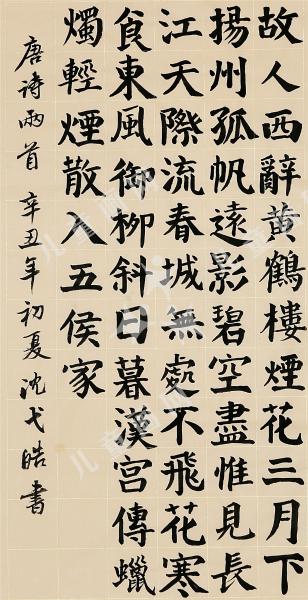 故人西辭黃鶴樓煙花三月下
揚州孤帆遠影碧空盡惟見長
江天際流春城無處不飛花寒
食東風御柳斜日暮漢宮傳蠟
燭輕煙散入五侯家
唐詩兩首 辛丑年初夏沈弋皓書